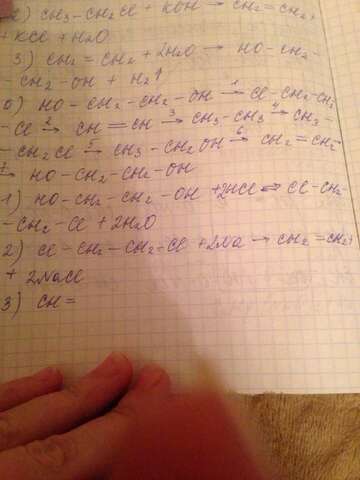 2) CH3-CH2Cl + KOH → CH2=CH2+
+ KCl + H2O
3) CH2 = CH2 + 2H2O → HO-CH2-
-CH2-OH + H2↑
б) HO-CH2-CH2-OH 1→ Cl-CH2-CH2
-Cl 2→ CH=CH 3→ CH3-CH3 4→ CH3-
-CH2Cl 5→ CH3-CH2OH 6→ CH2=CH2
7→ HO-CH2-CH2-OH
1) HO-CH2-CH2-OH +2HCl ⇄ Cl-CH2-
-CH2-Cl + 2H2O
2) Cl-CH2-CH2-Cl +2Na → CH2=CH2+
+ 2NaCl
3) CH=